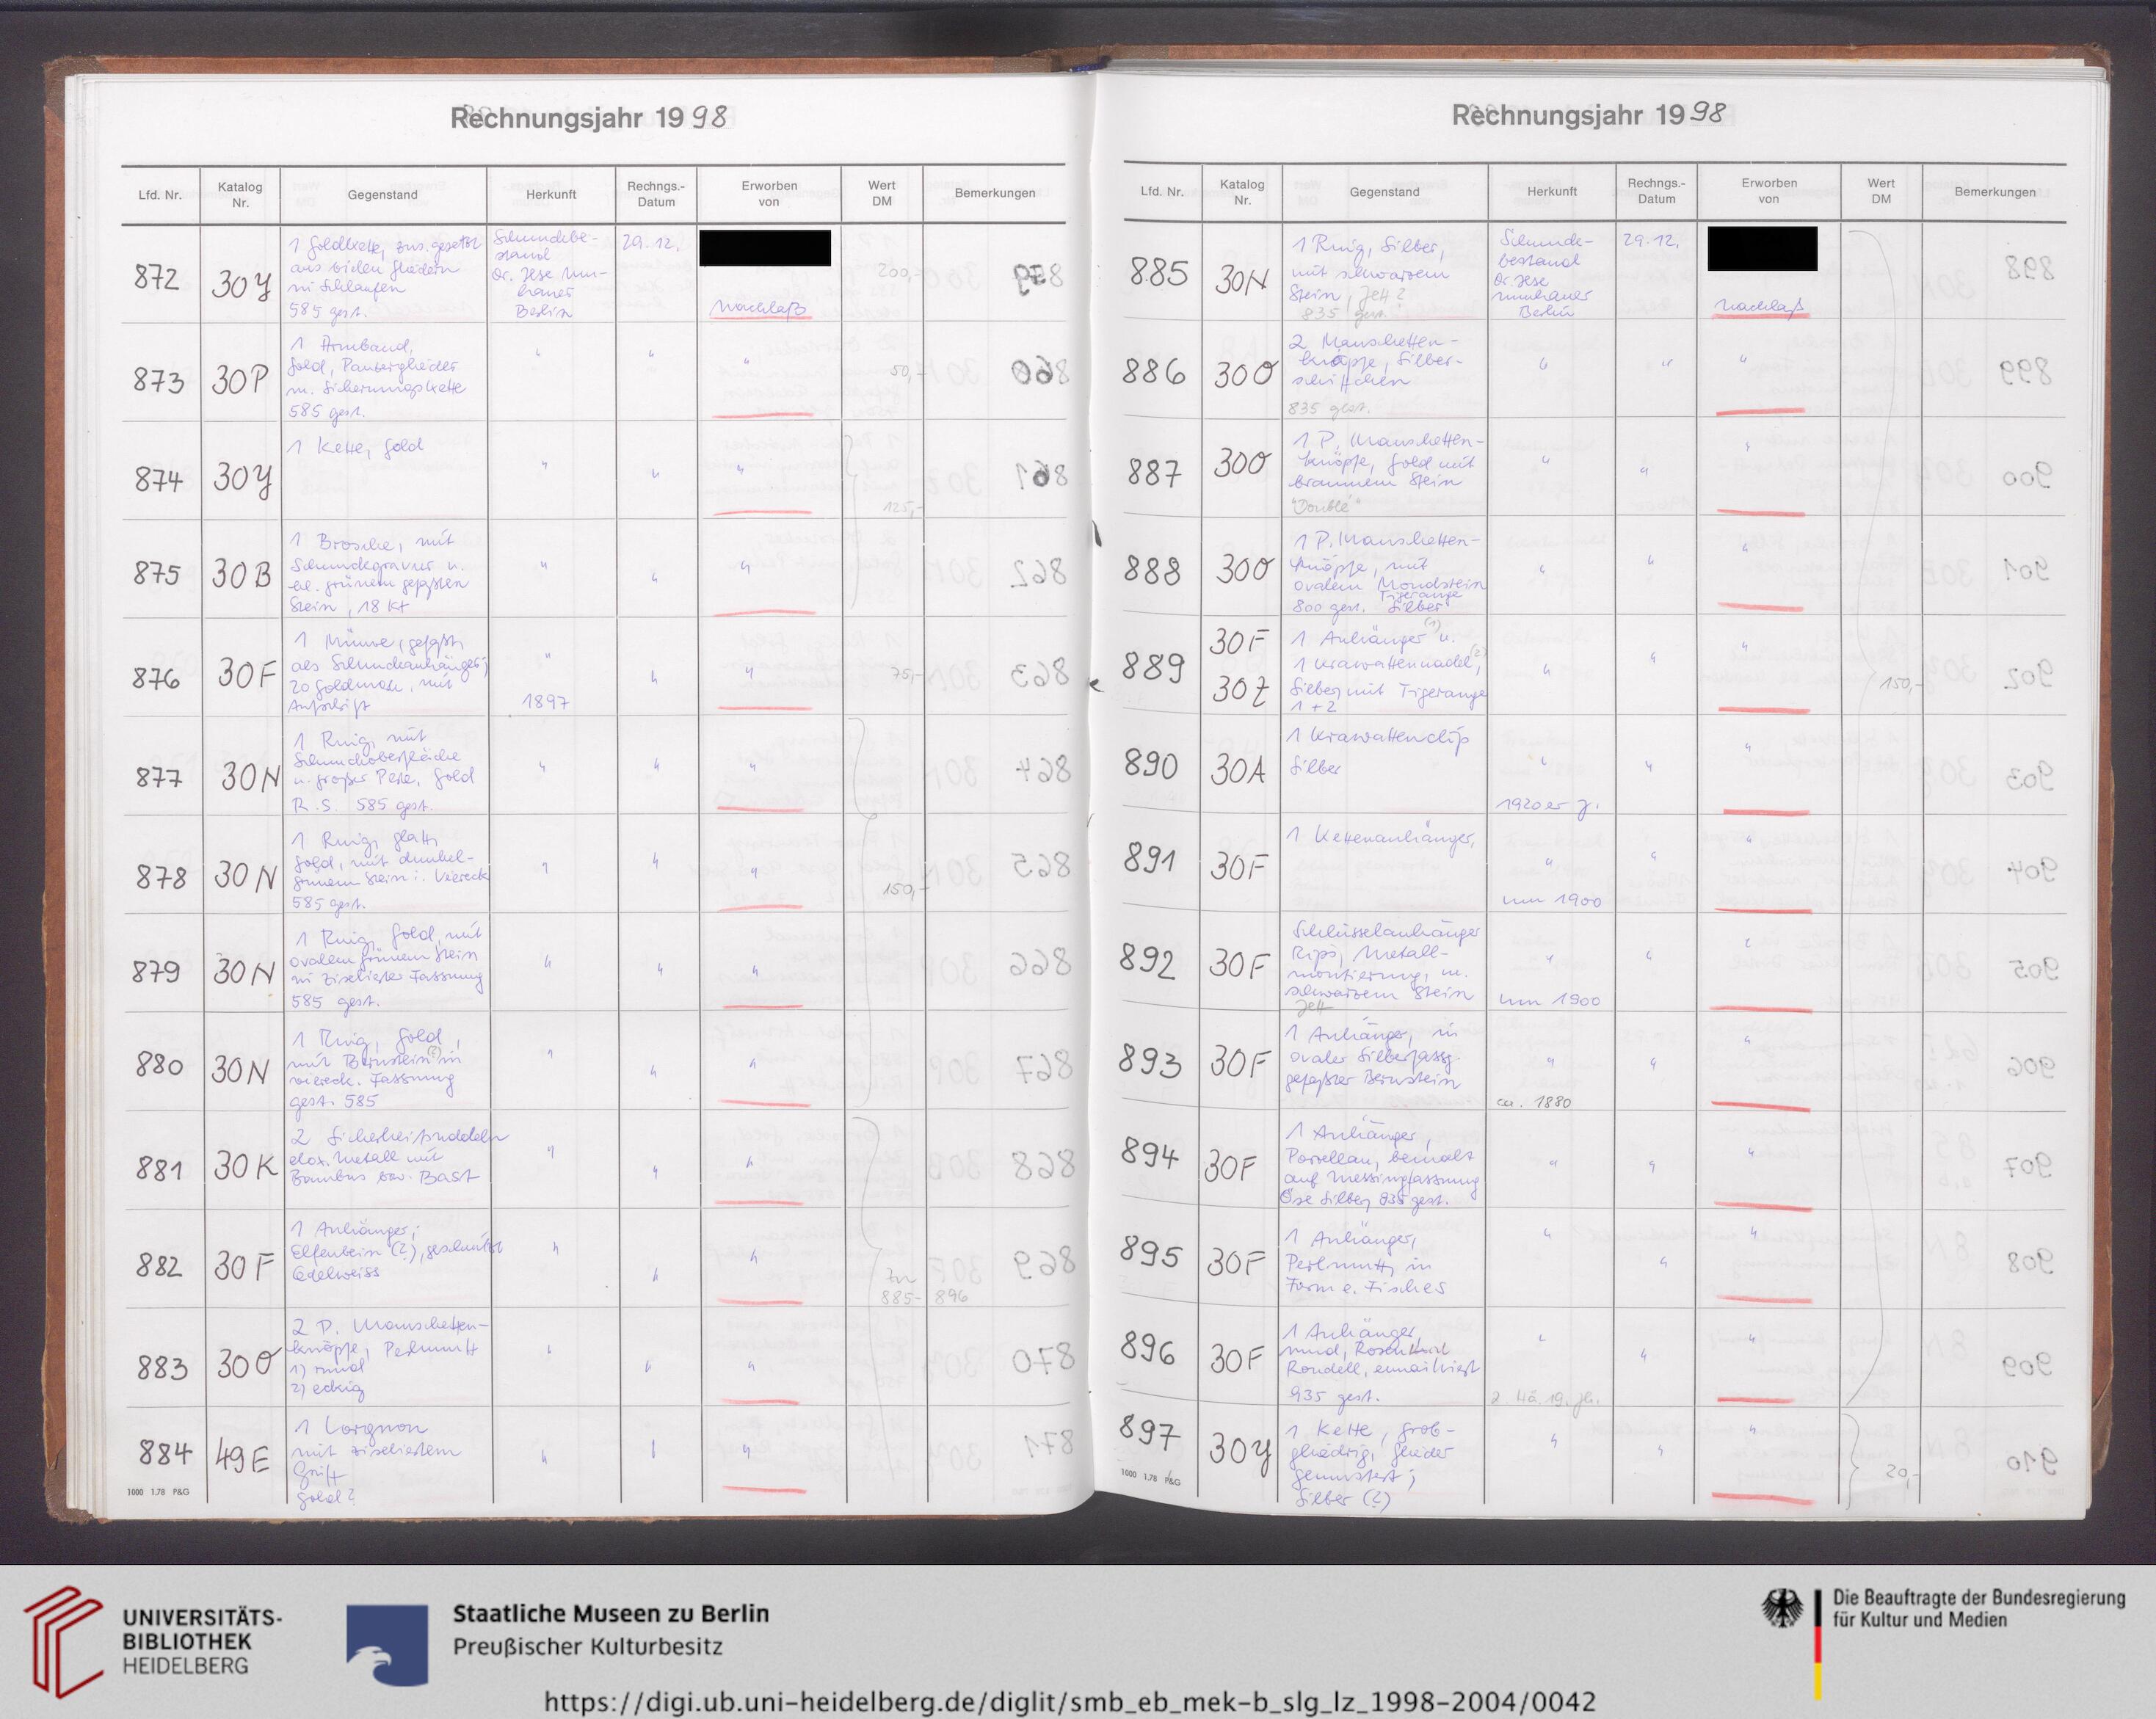 Rechnungsjahr 1998
Lfd. Nr. Katalog Nr. Gegenstand Herkunft Rechngs.-Datum Erworben von Wert DM Bemerkungen
872 30Y 29.12. 200,-
1 Goldkette, zus.gesetzt
aus vielen Gliedern
585 gest.
Schmuckbe-
stand
Dr. Ilse
Berlin
Nachlaß
873 30P 50,-
1 Armband,
Gold, Panzerglieder
m. Sicherungskette
585 gest.
874 30Y 125,-
1 Kette, Gold
875 30B
1 Brosche, mit
Schmuckgravur u.
grünem gefaßten
Stein, 18 Kt
876 30F 75,-
1 Münze, gefaßt,
als Schmuckanhänger;
20 Goldmark, mit
Aufschrift
1897
877 30N
1 Ring, mit
Schmuckoberfläche
u. großer Perle, Gold
R.S. 585 gest.
878 30N 150,-
1 Ring, glatt,
Gold, mit dunkel-
grünem Stein i. Viereck
585 gest.
879 30N
1 Ring, Gold, mit
ovalem grünem Stein
in ziselierter Fassung
585 gest.
880 30N
1 Ring, Gold,
mit Bernstein (?) in
viereck. Fassung
gest. 585
881 30K
2 Sicherheitsnadeln
elox. Metall mit
Bambus bzw. Bast
882 30F
1 Anhänger;
Elfenbein (?), geschnitzt
Edelweiss
zu
885-896
883 30O
2 P. Manschetten-
knöpfe, Perlmutt
1) rund
2) eckig
884 49E
1 Lorgnon
mit ziseliertem
Griff
Gold?
1000 1.78 P&G
Rechnungsjahr 1998
Lfd. Nr. Katalog Nr. Gegenstand Herkunft Rechngs.-Datum Erworben von Wert DM Bemerkungen
885 30N 29.12.
1 Ring, Silber,
mit schwarzem
Stein, Jett?
835 gest.
Schmuck-
bestand
Dr. Ilse
Berlin
Nachlaß
886 30O
2 Manschetten-
knöpfe, Silber-
835 gest.
887 30O
1 P. Manschetten-
knöpfe, Gold mit
braunem Stein
"Doublé"
888 30O
1 P. Manschetten-
knöpfe, mit
ovalem Mondstein
Tigerauge
800 gest. Silber
889 30F 30Z 150,-
1 Anhänger (1) u.
1 Krawattennadel, (2)
Silber, mit Tigerauge
1 + 2
890 30A
1 Krawattenclip
Silber
1920er J.
891 30F
1 Kettenanhänger,
um 1900
892 30F
Schlüsselanhänger
Rips, Metall-
montierung, m.
schwarzem Stein
Jett
um 1900
893 30F
1 Anhänger, in
ovaler Silberfassg.
gefaßter Bernstein
ca. 1880
894 30F
1 Anhänger,
Porzellan, bemalt
auf Messingfassung
Öse Silber, 835 gest.
895 30F
1 Anhänger,
Perlmutt, in
Form e. Fisches
896 30F
1 Anhänger,
rund,
Rondell, emailliert
935 gest.
2. Hä. 19. Jh.
897 30Y 20,-
1 Kette, grob-
gliedrig, Glieder
gemustert;
Silber (?)
1000 1.78 P&G
UNIVERSITÄTS-
BIBLIOTHEK
HEIDELBERG
Staatliche Museen zu Berlin
Preußischer Kulturbesitz
Die Beauftragte der Bundesregierung
für Kultur und Medien
https://digi.ub.uni-heidelberg.de/diglit/smb_eb_mek-b_slg_lz_1998-2004/0042